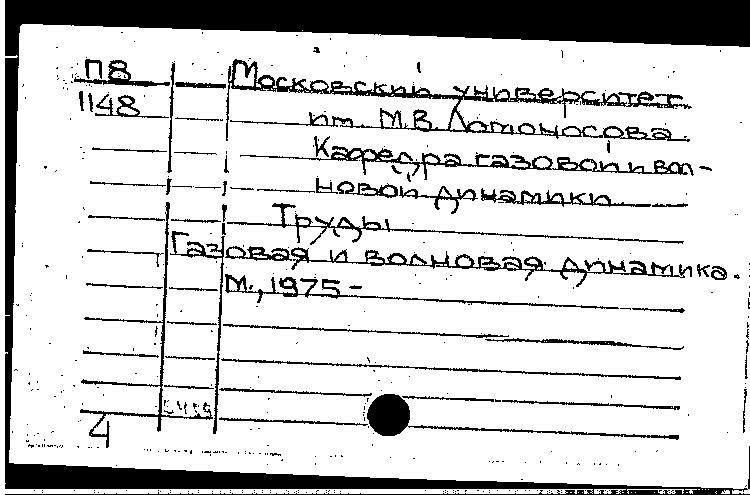 П8 Московский университет
1148 им. М.В. Ломоносова.
Кафедра газовой и вол-
новой динамики
Труды
Газовая и волновая динамика.
М., 1975 -
4